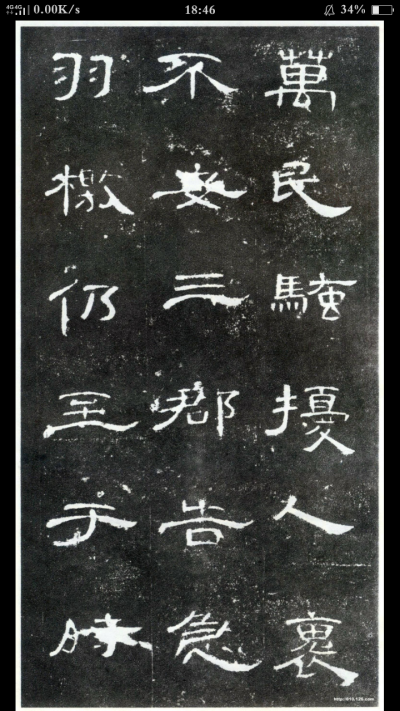 0.00K/s 18:46 34%
萬民騷擾人裹
不安三郡告急
羽檄仍至于時